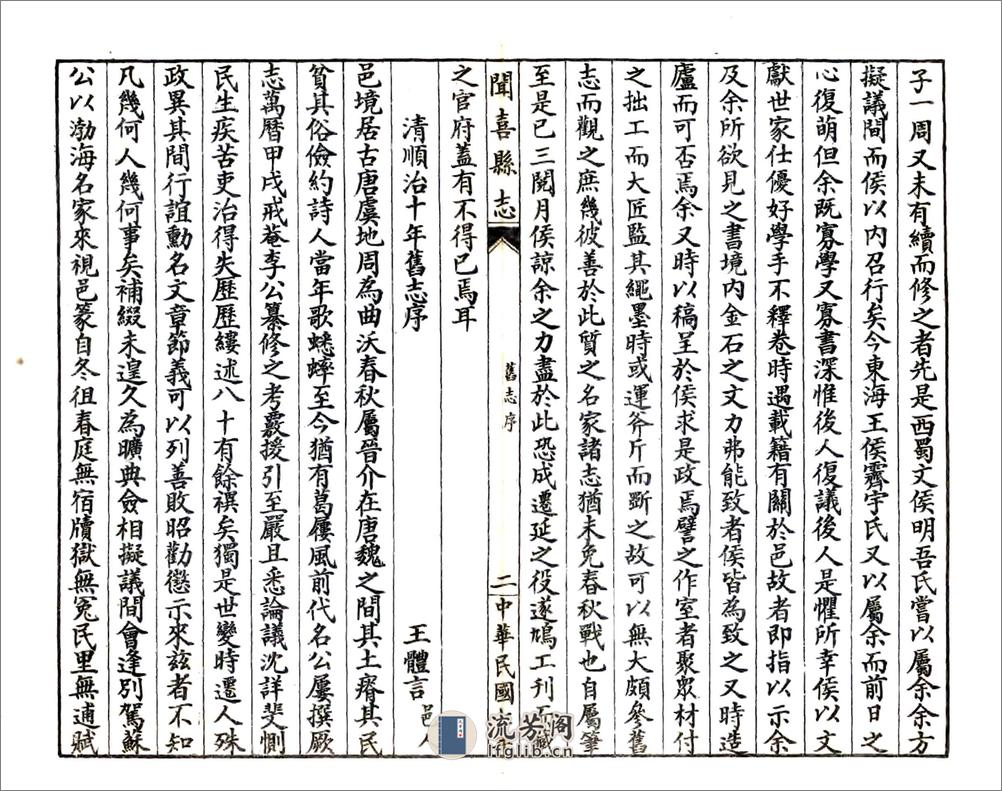 子一周又未有續而修之者先是西蜀文侯明吾氏嘗以屬余余方
擬議間而侯以內召行矣今東海王侯霽宇氏又以屬余而前日之
心復萌但余既寡學又寡書深惟後人復議後人是懼所幸侯以文
獻世家仕優好學手不釋卷時遇載籍有關於邑故者即指以示余
及余所欲見之書境內金石之文力弗能致者侯皆為致之又時造
廬而可否焉余又時以稿呈於侯求是政焉譬之作室者聚眾材付
之拙工而大匠監其繩墨時或運斧斤而斷之故可以無大頗參舊
志而觀之庶幾彼善於此質之名家諸志猶未免春秋戰也自屬筆
至是已三閱月侯諒余之力盡於此恐成遷延之役遂鳩工刊
之官府蓋有不得已焉耳
聞喜縣志
舊志序
二
中華民國
清順治十年舊志序
王體言 邑人
邑境居古唐虞地周為曲沃春秋屬晉介在唐魏之間其土瘠其民
貧其俗儉約詩人當年歌蟋蟀至今猶有葛屨風前代名公屢撰厥
志萬曆甲戌戒菴李公纂修之考覈援引至嚴且悉論議沈詳斐惻
民生疾苦吏治得失歷歷縷述八十有餘禩矣獨是世變時遷人殊
政異其間行誼勳名文章節義可以列善敗昭勸懲示來茲者不知
凡幾何人幾何事矣補綴未遑久為曠典僉相擬議間會逢別駕蘇
公以渤海名家來視邑篆自冬徂春庭無宿牘獄無冤民里無逋賦
流芳阁
lfglib.cn